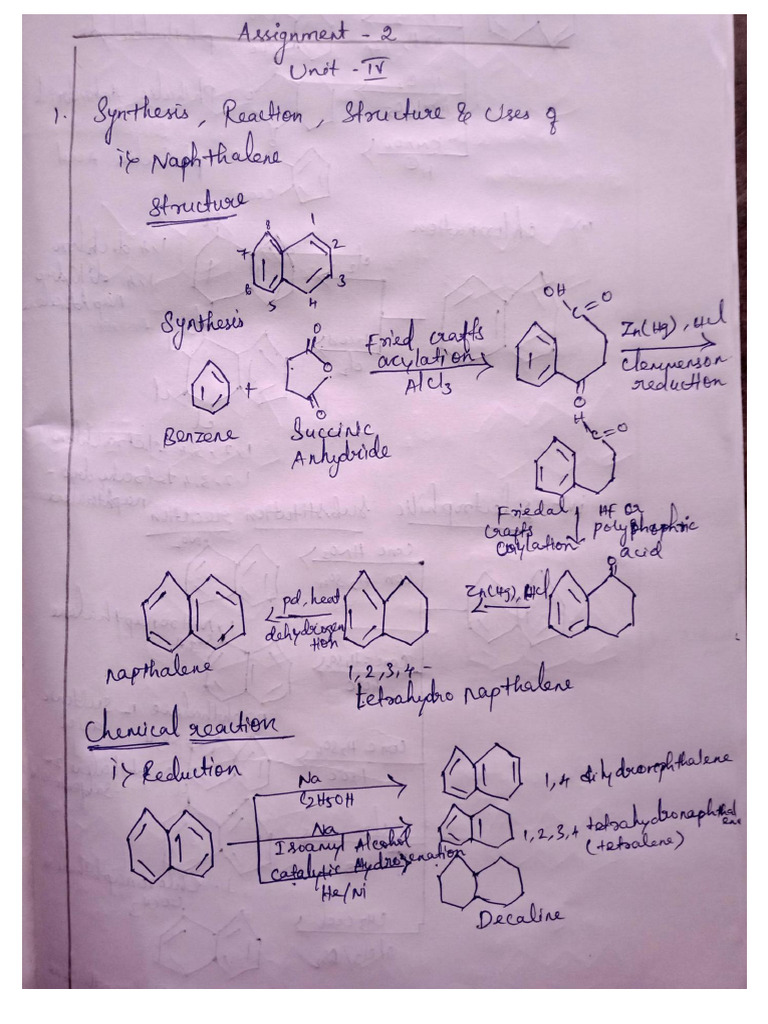 Assignment - 2
Unit - IV
1. Synthesis, Reaction, Structure & Uses of
i) Naphthalene
Structure
8 1
7 2
6 3
5 4
Synthesis
O
O
O
Benzene
+
Succinic
Anhydride
Fried crafts
acylation
AlCl3
OH O
O
Zn(Hg), HCl
Clemmenson
reduction
H O
Friedal
crafts
HF or
polyphophric
acid
O
Zn(Hg), HCl
pd, heat
dehydrogen
tion
napthalene
1, 2, 3, 4 -
tetrahydro napthalene
Chemical reaction
i) Reduction
Na
C2H5OH
1,4 dihydronphthalene
Na
Isoamyl Alcohol
1,2,3,4 tetrahydronaphthal
ene
(tetralene)
Catalytic Hydrogenation
He/Ni
Decaline